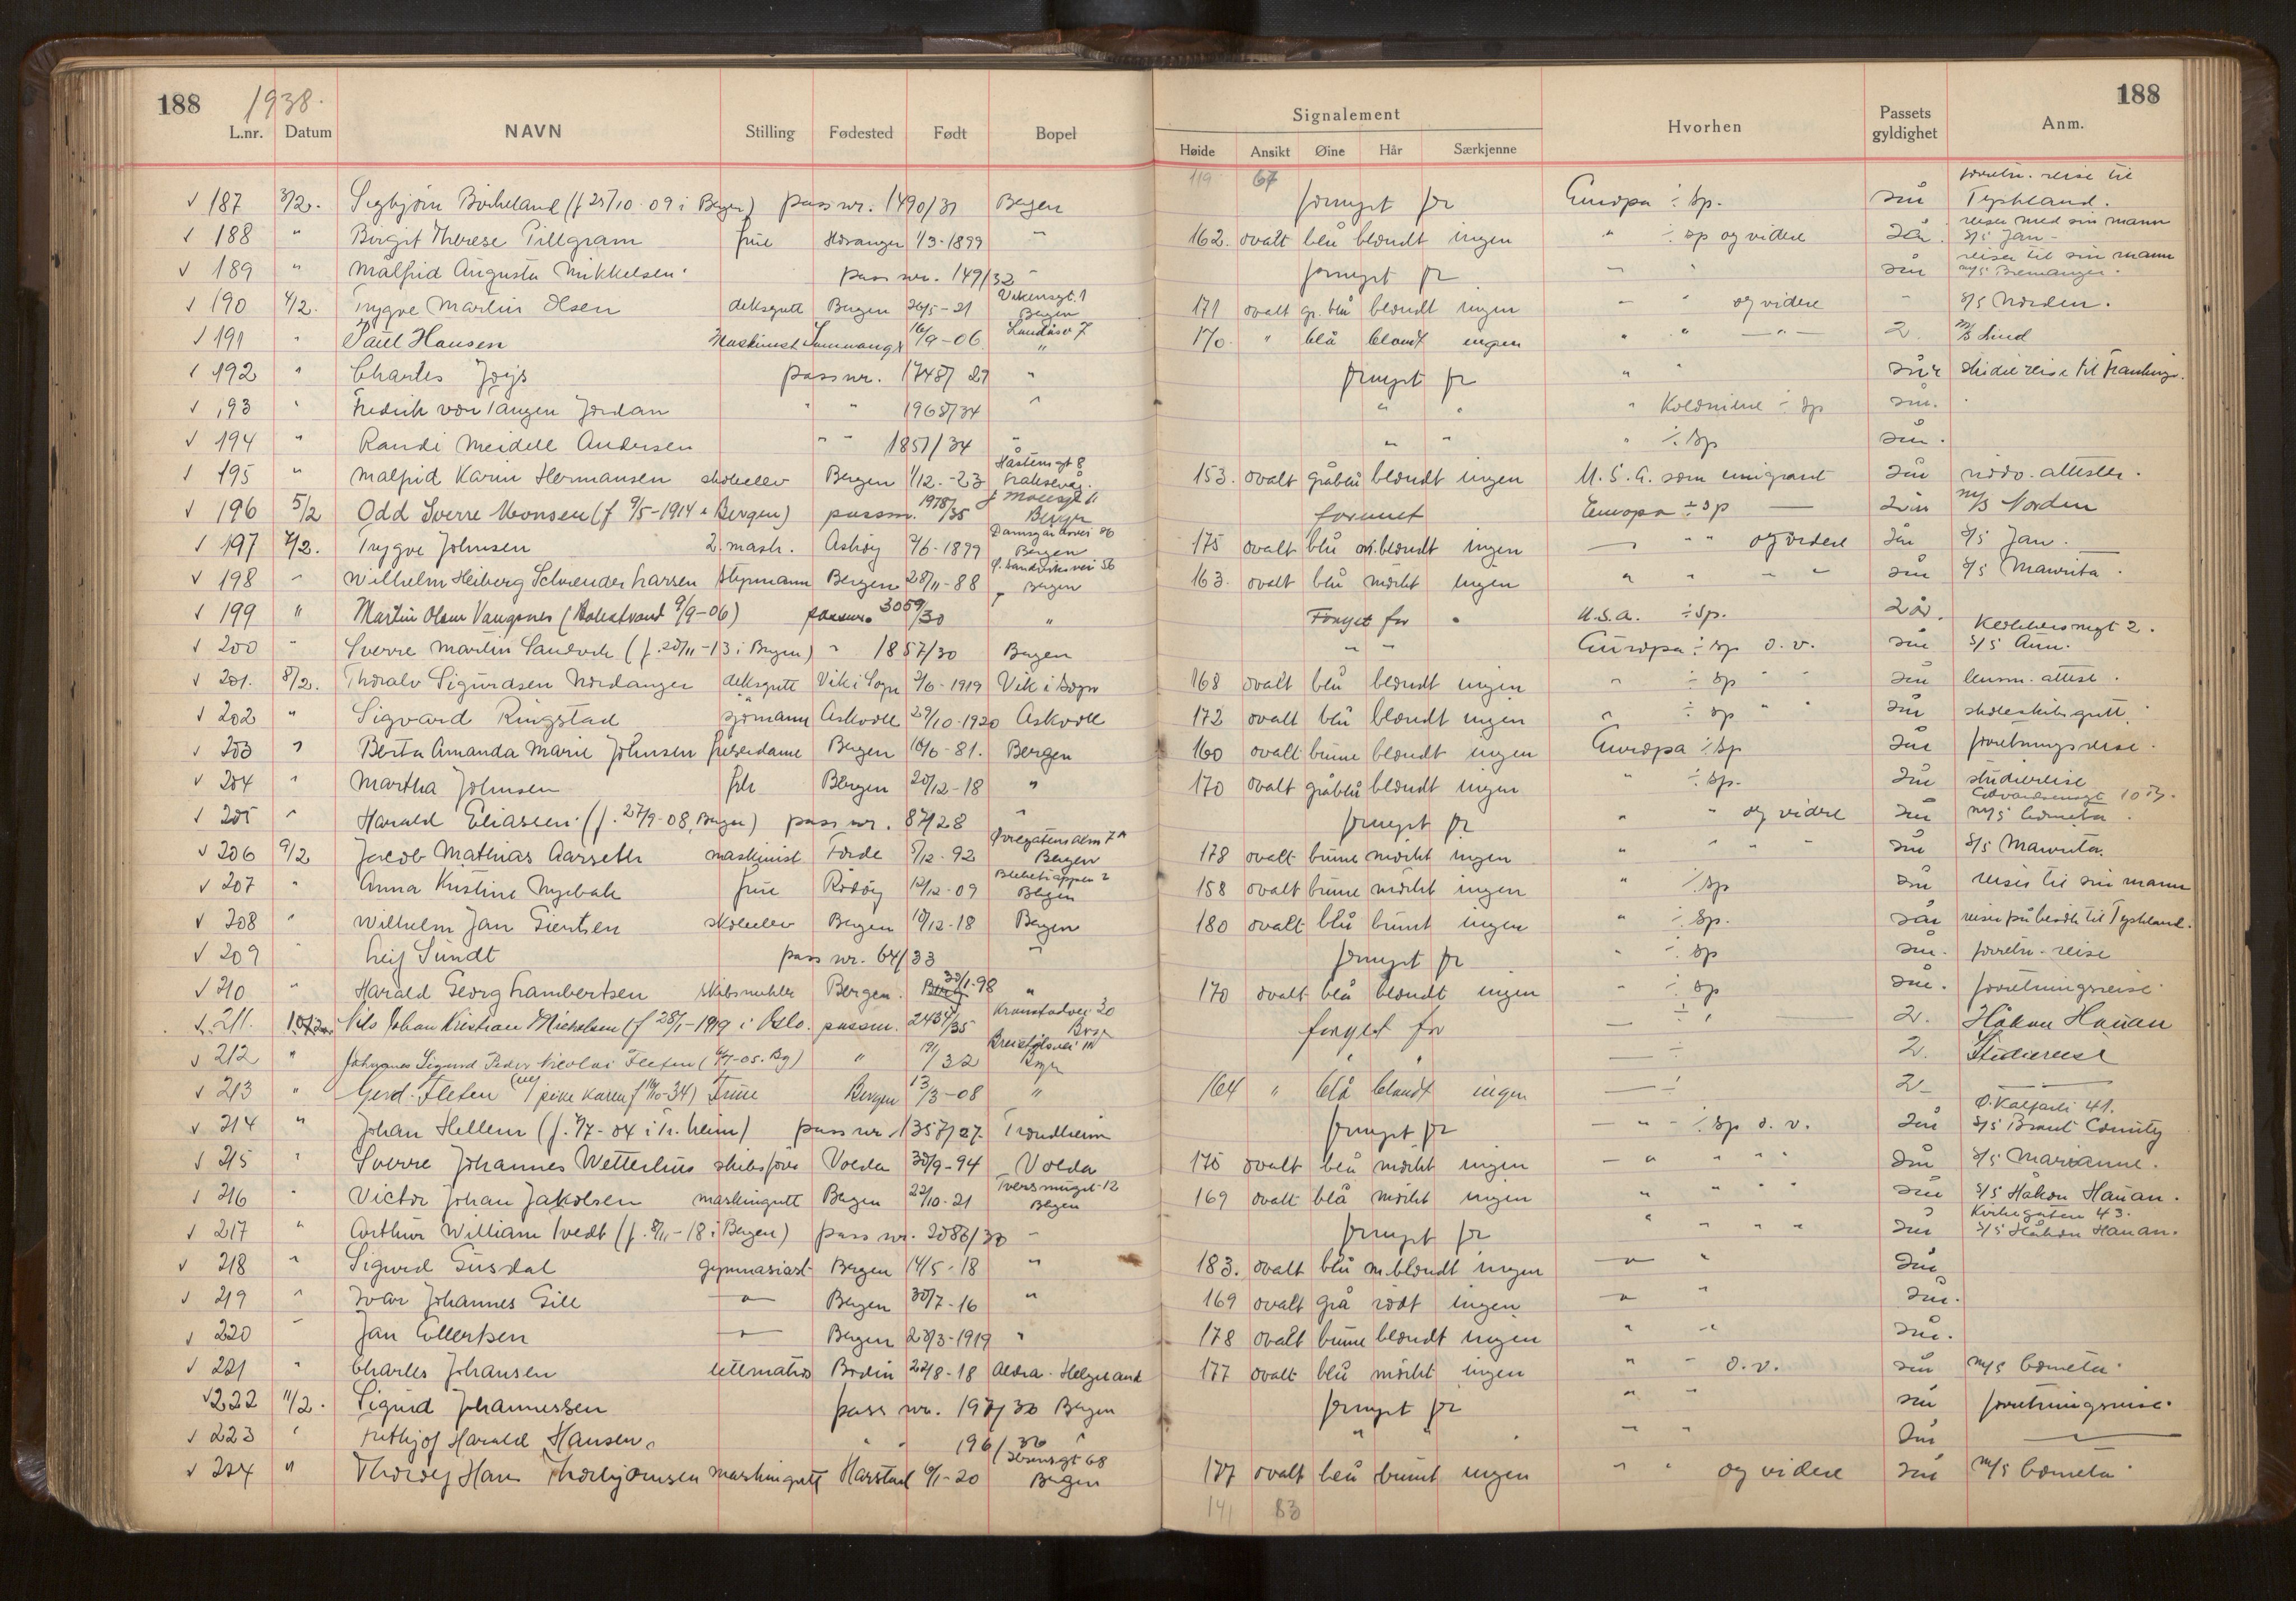 188 1938. 188
L.nr. Datum NAVN Stilling Fødested Født Bopel Signalement Hvorhen Passets gyldighet Anm.
Høide Ansikt Øine Hår Særkjenne
119 67
forretn. reise til
187 3/2. Sigbjørn Birkeland (f 25/10-09 i Bergen) pass nr. 1490/31 Bergen fornyet for Europa ÷ Sp. 2 år Tyskland.
reiser med sin mann
188 " Birgit Therese Pillgram frue 1/3-1899 " 162. ovalt blå blondt ingen " ÷ Sp og videre 2 år. S/S Jan -
reiser til sin mann
189 " Målfrid Augusta Mikkelsen pass nr. 149/32 " fornyet for " " 2 år M/S Bremanger.
190 4/2. Trygve Martin Olsen deksgutt Bergen 26/5-21 Bergen 171 ovalt gr.blå blondt ingen " " og videre " S/S Norden.
191 " Paul Hansen Maskinist 16/9-06 Landåsv 7 " 170. " blå blondt ingen " " — " — 2 M/S Lind
192 " Charles pass nr. 1748/27 " fornyet for " " 2 år studiereise til Frankrige.
193 " Fredrik von Tangen Jordan " " 1965/34 " " " " Koloniene ÷ Sp 2 år.
194 " Randi Meidell Andersen " " 1851/34 " " " " ÷ Sp 2 år.
195 " Målfrid Karin Hermansen skoleelev Bergen 1/12-23 153. ovalt gråblå blondt ingen U.S.A. som emigrant 2 år attester.
196 5/2 Odd Sverre Monsen (f 9/5-1914 i Bergen) passnr. 1978/35 Bergen fornyet Europa ÷ Sp — 2 år M/S Norden
Damsgårdsvei 86
197 7/2. Trygve Johnsen 2. mask. Askøy 7/6-1899 Bergen 175 ovalt blå m.blondt ingen — " " og videre 2 år S/S Jan.
Ø. Sandviksvei 56
198 " Wilhelm Heiberg Schwender Larsen Styrmann Bergen 28/11-88 Bergen 163. ovalt blå mørkt ingen " " " " 2 år S/S Mawrita.
199 " Martin Olsen Vangsnes (Balestrand 9/9-06) passnr. 3059/30 " Fornyet for " U.S.A. ÷ Sp. 2 år.
200 " Sverre Martin Sandvik (f. 20/11-13 i Bergen) " 1857/30 Bergen " " Europa ÷ Sp o.v. 2 år S/S Ann.
201. 8/2. Thoralv Sigurdsen Nordanger deksgutt Vik i Sogn 2/6-1919 Vik i Sogn 168 ovalt blå blondt ingen " ÷ Sp " " 2 år lensm. attest.
202 " Sigvard Ringstad sjømann Askvoll 29/10-1920 Askvoll 172 ovalt blå blondt ingen " ÷ Sp " " 2 år skoleskibsgutt.
203 " Berta Amanda Marie Johnsen friserdame Bergen 10/6-81. Bergen 160 ovalt brune blondt ingen Europa ÷ Sp 2 år forretningsreise.
204 " Martha Johnsen frk Bergen 20/12-18 " 170 ovalt gråblå blondt ingen " ÷ Sp. 2 år studiereise
205 " Harald Eliassen (f. 27/9-08, Bergen) pass nr. 87/28 " fornyet for " " og videre 2 år M/S Cometa.
206 9/2 Jacob Mathias Aarseth maskinist Førde 5/12-92 Bergen 178 ovalt brune mørkt ingen " " " " 2 år S/S Mawrita.
207 " Anna Kristine Nygbak frue Rødøy 12/12-09 Bergen 158 ovalt brune mørkt ingen " ÷ Sp 2 år reiser til sin mann
208 " Wilhelm Jan Giertsen skoleelev Bergen 10/12-18 Bergen 180 ovalt blå brunt ingen " ÷ Sp. 2 år reiser på besøk til Tyskland.
209 " Leif Sundt pass nr. 64/33 " fornyet for " ÷ Sp 2 år. forretn-reise
210 " Harald Georg Lambertsen skibsmekler Bergen. 30/1-98 " 170 ovalt blå blondt ingen " ÷ Sp 2 år. forretningsreise
211. 10/2 Nils Johan Kristian Michelsen (f 28/1-1919 i Oslo. passnr. 2434/35 Kronstadvei 20 fornyet for — ÷ " — 2. Håkon Hauan
212 " Johannes Sigurd Peder Nicolai Fleten " 191/32 " " — ÷ 2. Studiereise
213 " Gerd Fleten (m/ 1 pike Karen f 10/10-34) Frue Bergen 13/3-08 " 164 " blå blondt ingen — ÷ 2 —
Ø. Kalfarli 41.
214 " Johan Hellem (f. 7/7-04 i Tr.heim) pass nr. 1357/27. Trondheim fornyet for — " — ÷ Sp o.v. 2 år S/S Brant County
215 " Sverre Johannes Wetterhus skibsfører Volda 30/9-94 Volda 175 ovalt blå mørkt ingen — " " " " 2 år S/S Marianne.
Tversmuget 12
216 " Victor Johan Jakobsen maskingutt Bergen 22/10-21 Bergen 169 ovalt blå mørkt ingen " " " " 2 år S/S Håkon Hauan.
Kirkegaten 43.
217 " Arthur William Tvedt (f. 8/11-18 i Bergen) pass nr. 2086/30 " fornyet for " " " " 2 år S/S Håkon Hauan.
218 " Sigurd Gusdal gymnasiast Bergen 14/5-18 " 183. ovalt blå m.blondt ingen — " — " 2 år
219 " Ivar Johannes Gill — " — Bergen 30/7-16 " 169 ovalt grå rødt ingen — " — " 2 år.
220 " Jan Ellertsen — " — Bergen 23/3-1919 " 178 ovalt brune blondt ingen " " 2 år.
221 " Charles Johansen lettmatros Bodin 22/8-18 Aldra. Helgeland 177 ovalt blå mørkt ingen " " o.v. 2 år M/S Cometa
222 11/2. Sigurd Johannessen pass nr. 197/30 Bergen fornyet for " " 2 år forretningsreise.
223 " Fritjof Harald Hansen " " 196/30 " " " " " 2 år —
Ibsensgt 68
224 " Thorleif Hans Thorbjørnsen maskingutt Harstad 6/1-20 Bergen 177 ovalt blå brunt ingen " " og videre 2 år M/S Cometa
141 83